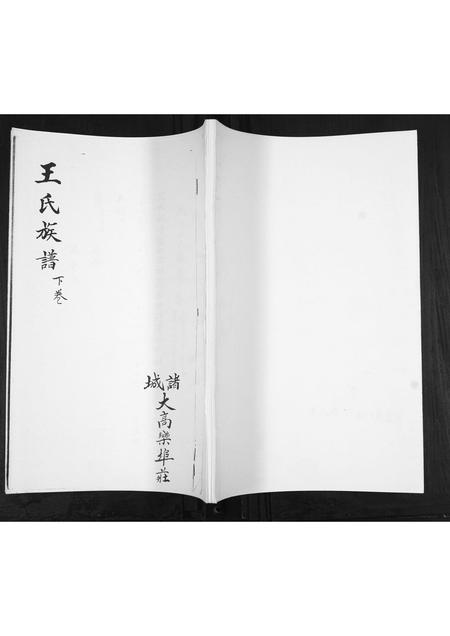 王氏族譜 下卷
諸城
大高樂埠莊